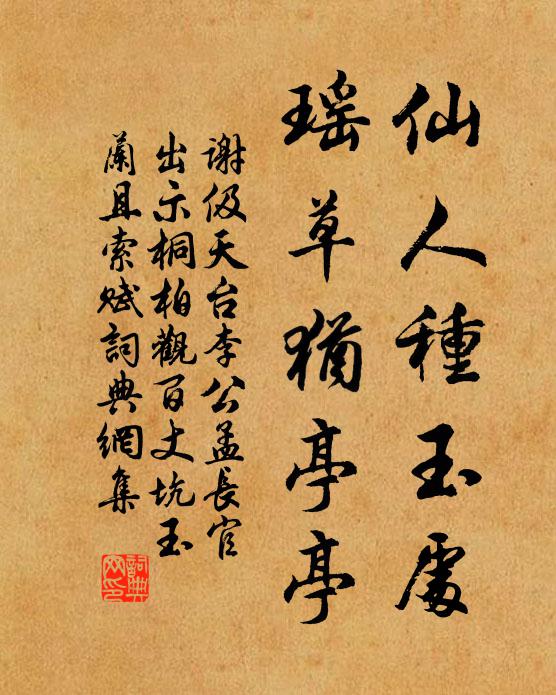 仙人種玉處
瑶草猶亭亭
謝伋天台李公孟長官
出示桐柏觀百丈坑玉
蘭且索賦詞典網集
詞典
网印